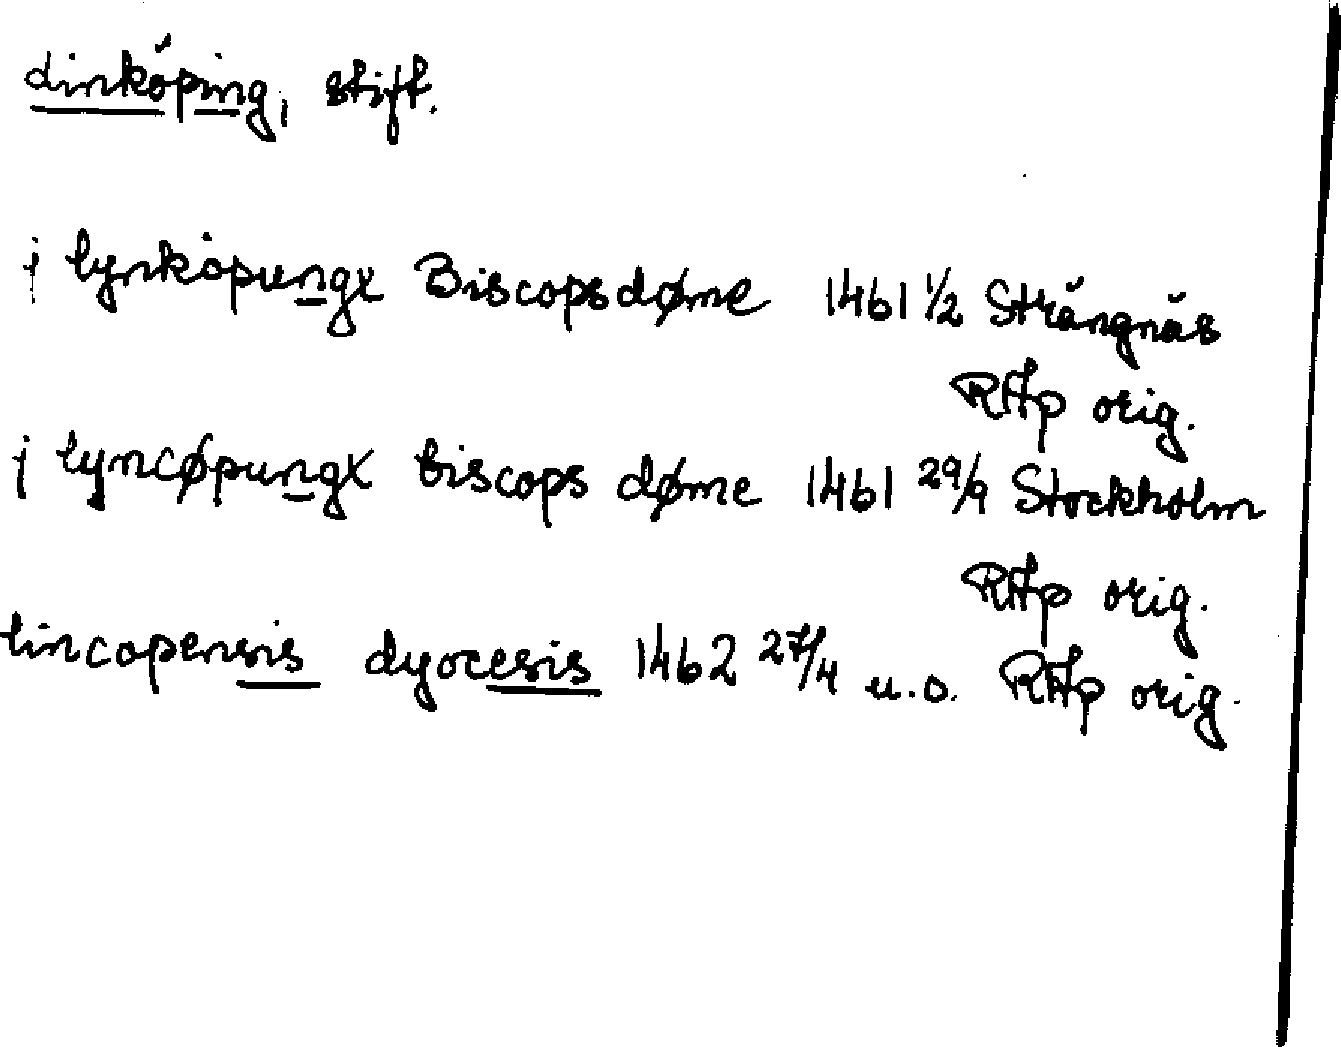 Linköping, stift.
j lynköpungx Biscopsdøme 1461 1/2 Strängnäs
RAp orig.
j lyncøpungx biscops døme 1461 29/9 Stockholm
RAp orig.
lincopensis dyocesis 1462 27/4 u.o. RAp orig.